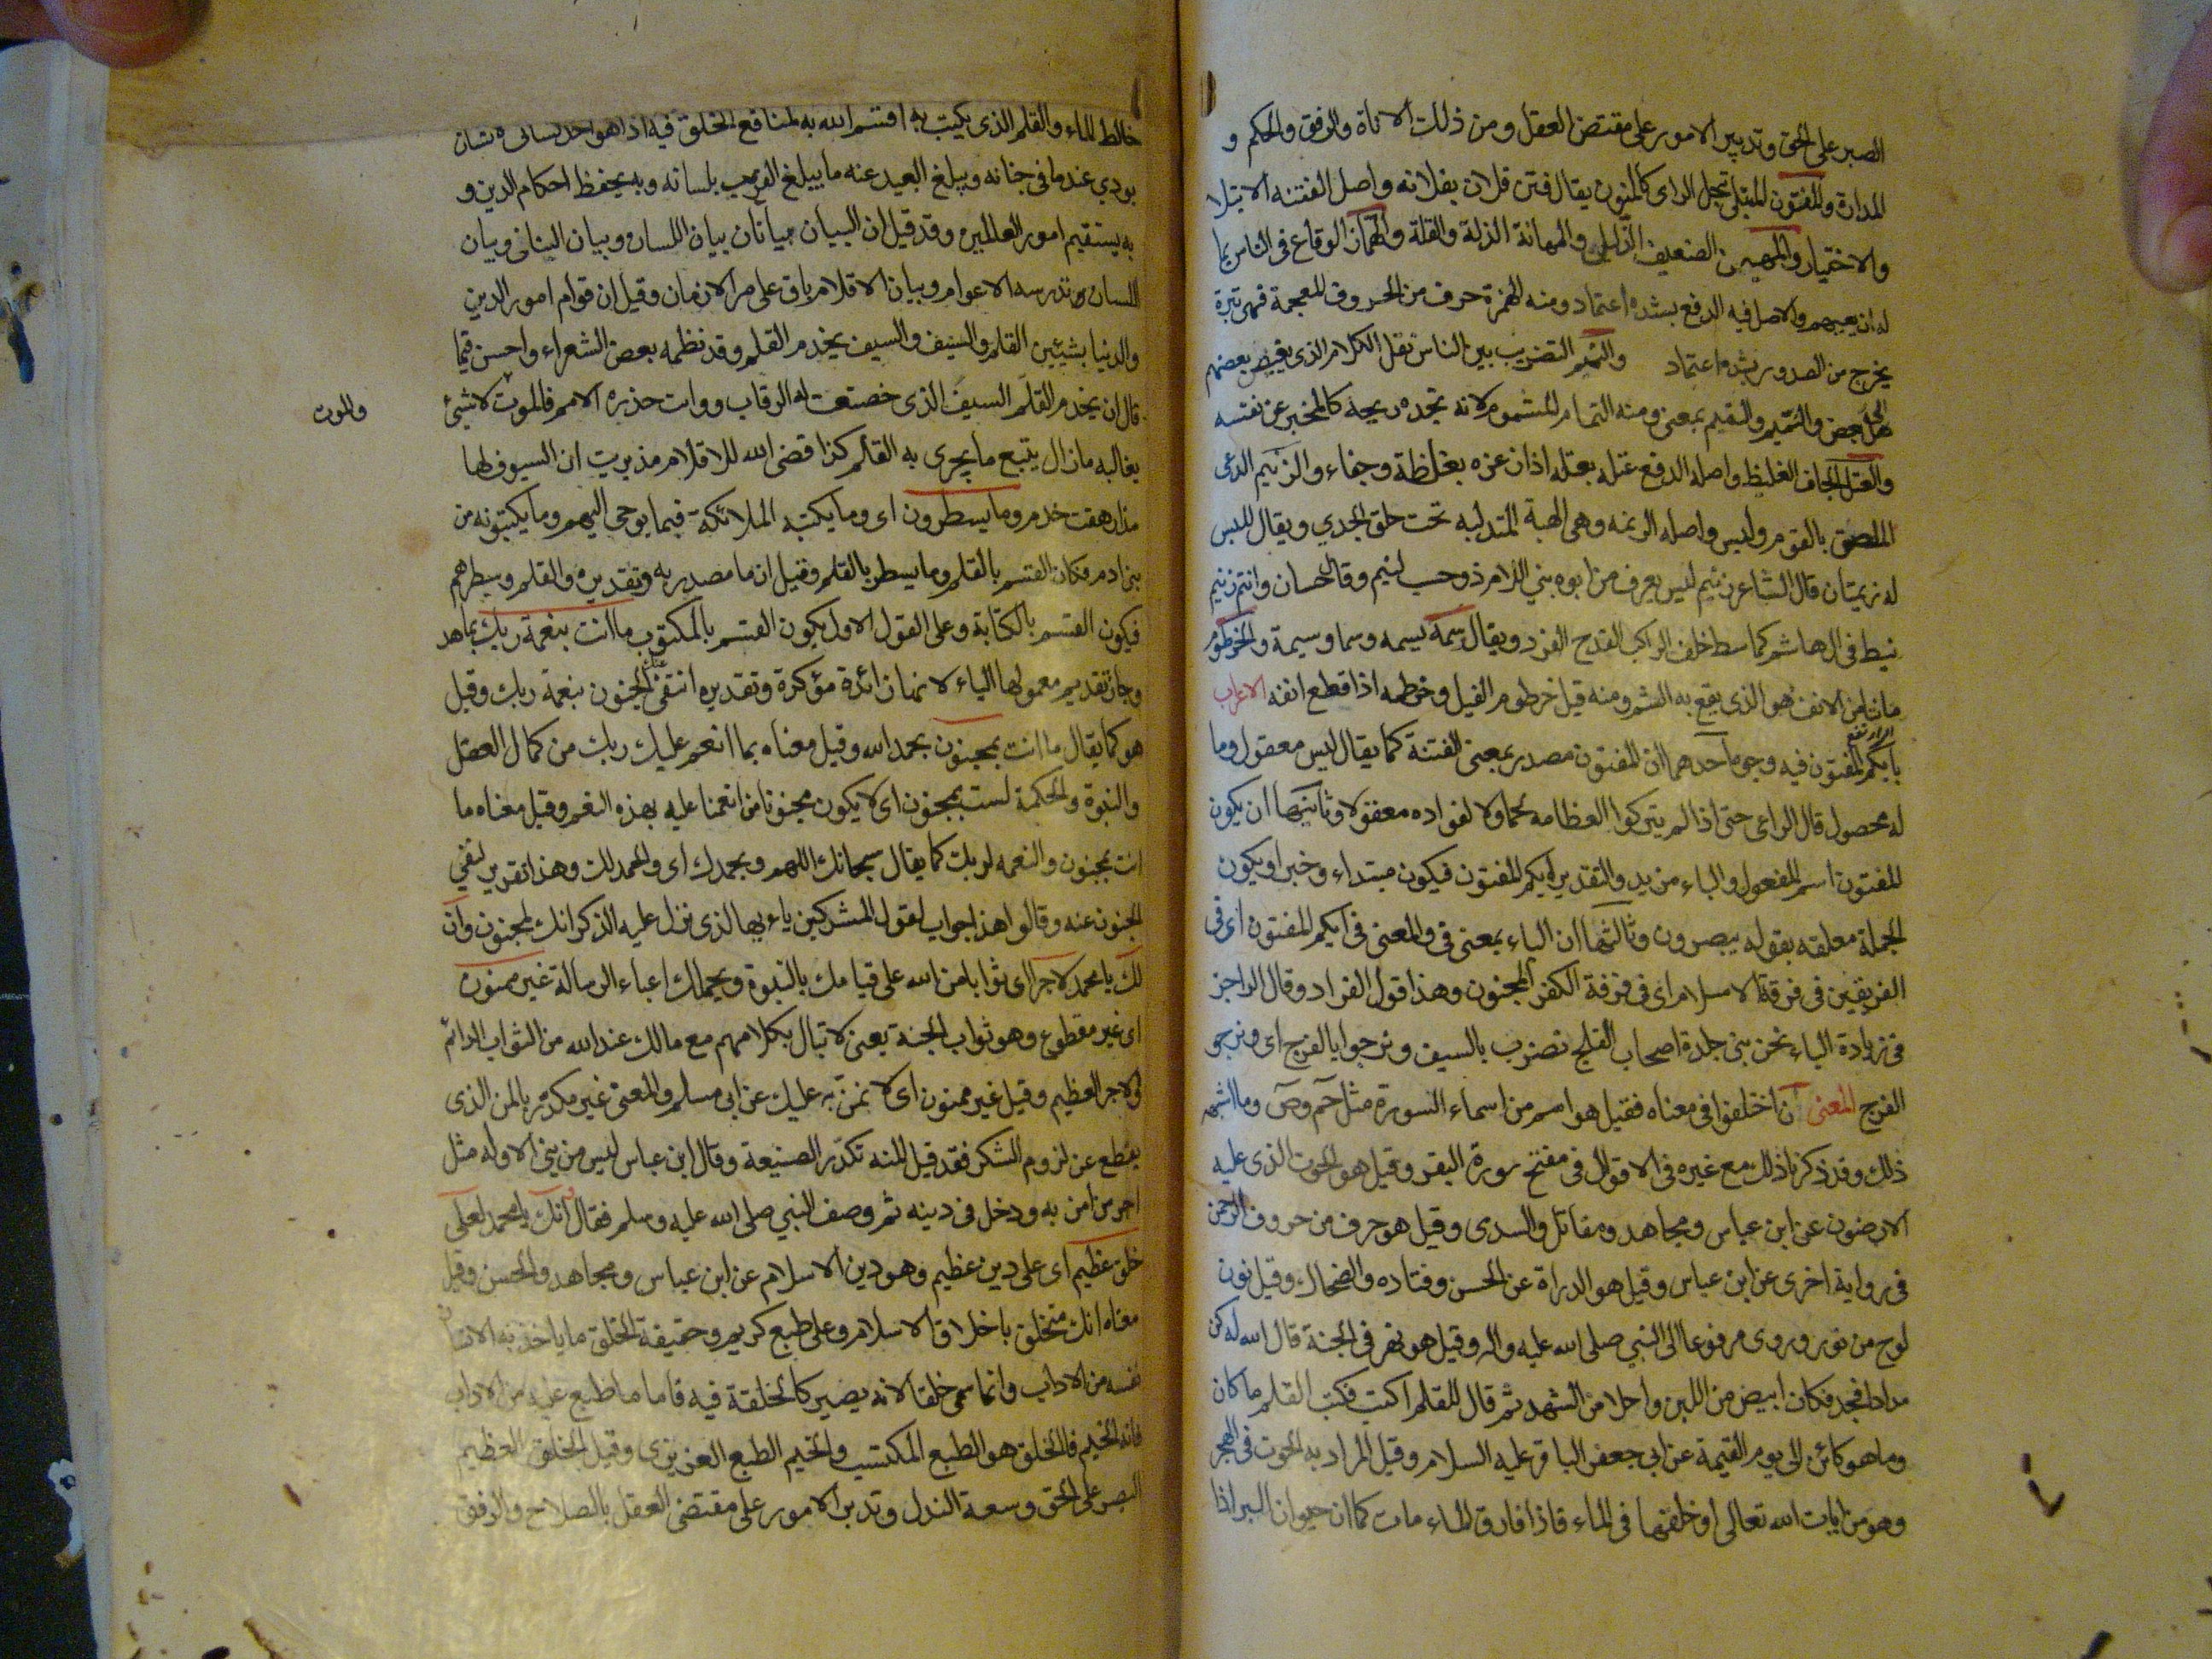 الصبر على الحق وتدبير الامور على مقتضى العقل ومن ذلك الاناة والرفق والحكم و
المدارة والمفتون المبتلى تخيل الراى كالمجنون يقال فتن فلان بفلانه واصل الفتنه الابتلا
والاختيار والمهين الضعيف الذليل والمهانة الذلة والقلة والهماز الوقاع فى الناس بما
له ان يعيبهم والاصل فيه الدفع بشده اعتماد ومنه الهمزة حرف من الحروف المعجمة فهى نبرة
يخرج من الصدور بشده اعتماد والنميم التضريب بين الناس نقل الكلام الذى يغيض بعضهم
على بعض والنميم والنميم بمعنى ومنه النمام المشموم لانه تجده ريحه كالمخبر عن نفسه
والعتل الجاف الغليظ واصله الدفع عتله يعتله اذا زعزه بغلظة وجفاء والزنيم الدعى
الملصق بالقوم وليس واصله الزنمه وهى الهبة المتدليه تحت حلق الجدي ويقال لليس
له زنمتان قال الشاعر زنيم ليس يعرف من ابوه بني اللام ذو حسب لئيم وقال حسان وانتم زنيم
نيط فى ال هاشم كما نيط خلف الراكب القدح الفرد ويقال سمه يسمه وسما وسيمة والخرطوم
مايلن من الانف هو الذى يقع به الشم ومنه قيل خرطوم الفيل وخرطمه اذا قطع انفه الاعراب
بايكم المفتون فيه وجوه احدهما ان المفتون مصدر بمعنى الفتنة كما يقال ليس معقول وما
له محصول قال الراعى حتى اذا لم يتركوا لعظامه لحما ولا لفواده معقولا وثانيها ان يكون
المفتون اسم المفعول والباء مزيده والتقدير ايكم المفتون فيكون مبتداء وخبر او يكون
الجملة معلقه بقوله يبصرون وثالثها ان الباء بمعنى فى والمعنى فى ايكم المفتون اى فى
الفريقين فى فرقة الاسلام اى فى فرقة الكفر المجنون وهذا قول الفراء وقال الراجز
فى زيادة الباء نحن بنى جلدة اصحاب الفلج نضرب بالسيف ونرجوا بالفرج اى ونرجو
الفرج المعنى ن اختلفوا فى معناه فقيل هو اسم من اسماء السورة مثل حم وص وما اشبه
ذلك وقد ذكرنا ذلك مع غيره فى الاقوال فى مفتتح سورة البقر وقيل هو الحوت الذى عليه
الارضون عن ابن عباس ومجاهد ومقاتل والسدى وقيل هو حرف من حروف الرحمن
فى رواية اخرى عن ابن عباس وقيل هو الدواة عن الحسن وقتاده والضحاك وقيل نون
لوح من نور وروى مرفوعا الى النبي صلى الله عليه واله وقيل هو نهر فى الجنة قال الله له كن
مدادا فجمد فكان ابيض من اللبن واحلا من الشهد ثم قال للقلم اكتب فكتب القلم ما كان
وما هو كائن الى يوم القيمة عن ابى جعفر الباقر عليه السلام وقيل المراد به الحوت فى البحر
وهو من ايات الله تعالى او خلقها فى الماء فاذا فارق الماء مات كما ان حيوان البر اذا
خالط الماء والقلم الذى يكتب به اقسم الله به لمنافع الخلق فيه اذ هو احد لسانى
يودي عنه ما فى جنانه ويبلغ البعيد عنه ما يبلغ القريب بلسانه وبه يحفظ احكام الدين و
به يستقيم امور العالمين وقد قيل ان البيان بيانان بيان اللسان وبيان البنانى وبيان
اللسان تدرسه الاعوام وبيان الاقلام باق على مر الازمان وقيل ان قوام امور الدين
والدنيا بشيئين القلم والسيف والسيف يخدم القلم وقد نظمه بعض الشعراء واحسن فيما
قال ان يخدم القلم السيف الذى خضعت له الرقاب ووانت حذره الامم فالموت لا شئ
والموت
يغالبه مازال يتبع ما يجرى به القلم كذا قضى الله للاقلام مذ بريت ان السيوف لها
مذ ارهفت خدم وما يسطرون اى وما يكتبه الملائكة فيما يوحى اليهم وما يكتبونه من
بنى ادم فكان القسم بالقلم وما يسطر بالقلم وقيل ان ما مصدريه وتقديره والقلم وسطرهم
فيكون القسم بالكتابة وعلى القول الاول يكون القسم بالمكتوب ما انت بنعمة ربك بما هد
وجاز تقديم معمولها الباء لانها زائدة مؤكدة وتقديره انتفى عنك الجنون بنعمة ربك وقيل
هو كما يقال ما انت بمجنون بحمد الله وقيل معناه بما انعم عليك ربك من كمال العقل
والنبوة والحكمة لست بمجنون اى لا يكون مجنونا من انعمنا عليه بهذه النعم وقيل معناه ما
انت بمجنون والنعمه لربك كما يقال سبحانك اللهم وبحمدك اى والحمد لك وهذا تقرير لنفي
الجنون عنه وقالوا هذا جواب لقول المشركين ياءيها الذى نزل عليه الذكر انك لمجنون وان
لك يا محمد لاجرا اى ثوابا من الله على قيامك بالنبوة وتحملك اعباء الرسالة غير ممنون
اى غير مقطوع وهو ثواب الجنة يعنى لا تبال بكلامهم مع مالك عند الله من الثواب الدائم
والاجر العظيم وقيل غير ممنون اى لا يمن به عليك عن ابى مسلم والمعنى غير مكدر بالمن الذى
يقطع عن لزوم الشكر فقد قيل المنه تكدر الصنيعة وقال ابن عباس ليس من نبى الا وله مثل
اجر من امن به ودخل فى دينه ثم وصف النبي صلى الله عليه وسلم فقال وانك يا محمد لعلى
خلق عظيم اى على دين عظيم وهو دين الاسلام عن ابن عباس ومجاهد والحسن وقيل
معناه انك متخلق باخلاق الاسلام وعلى طبع كريم وحقيقة الخلق ما ياخذ به الانسان
نفسه من الاداب وانما سمى خلقا لانه يصير كالخلقة فيه فاما ما طبع عليه من الاداب
فانه الخيم فالخلق هو الطبع المكتسب والخيم الطبع الغريزى وقيل الخلق العظيم
الصبر على الحق وسعة البذل وتدبر الامور على مقتضى العقل بالصلاح والرفق